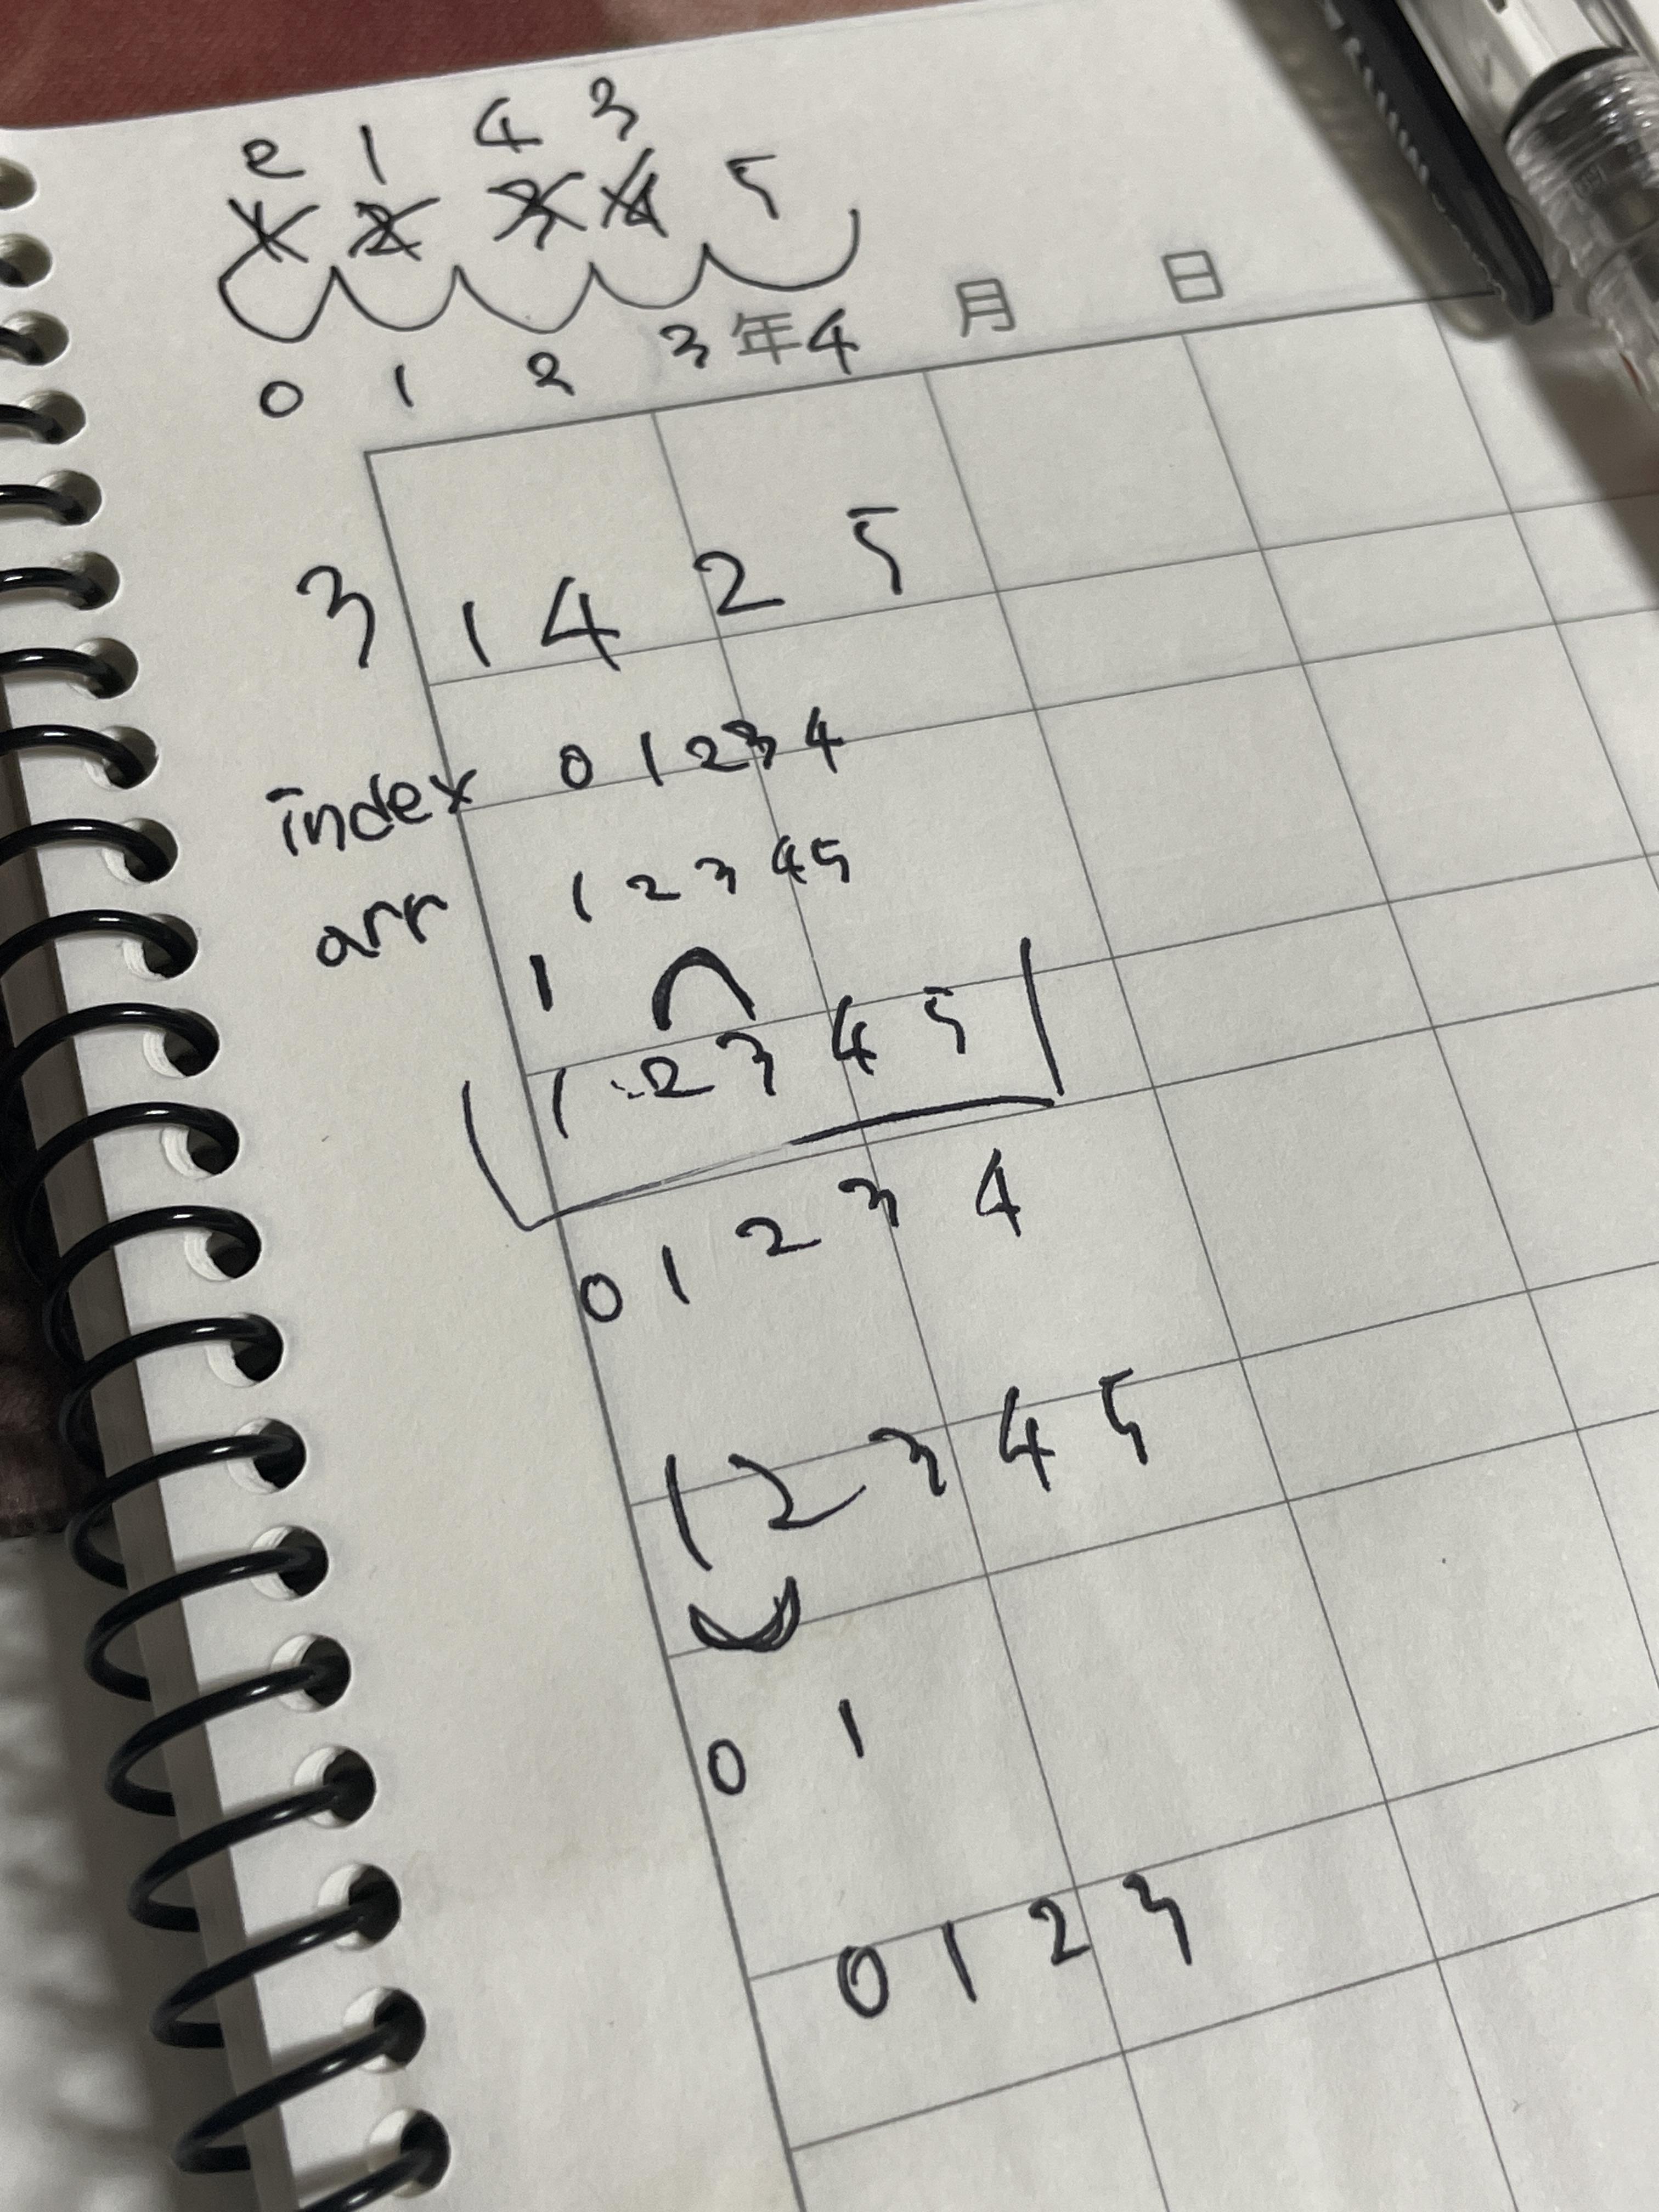 2 1 4 3
1 2 3 4 5
0 1 2 3 4
年 月 日
3 1 4 2 5
index 0 1 2 3 4
arr 1 2 3 4 5
1
1 2 3 4 5
0 1 2 3 4
1 2 3 4 5
0 1
0 1 2 3